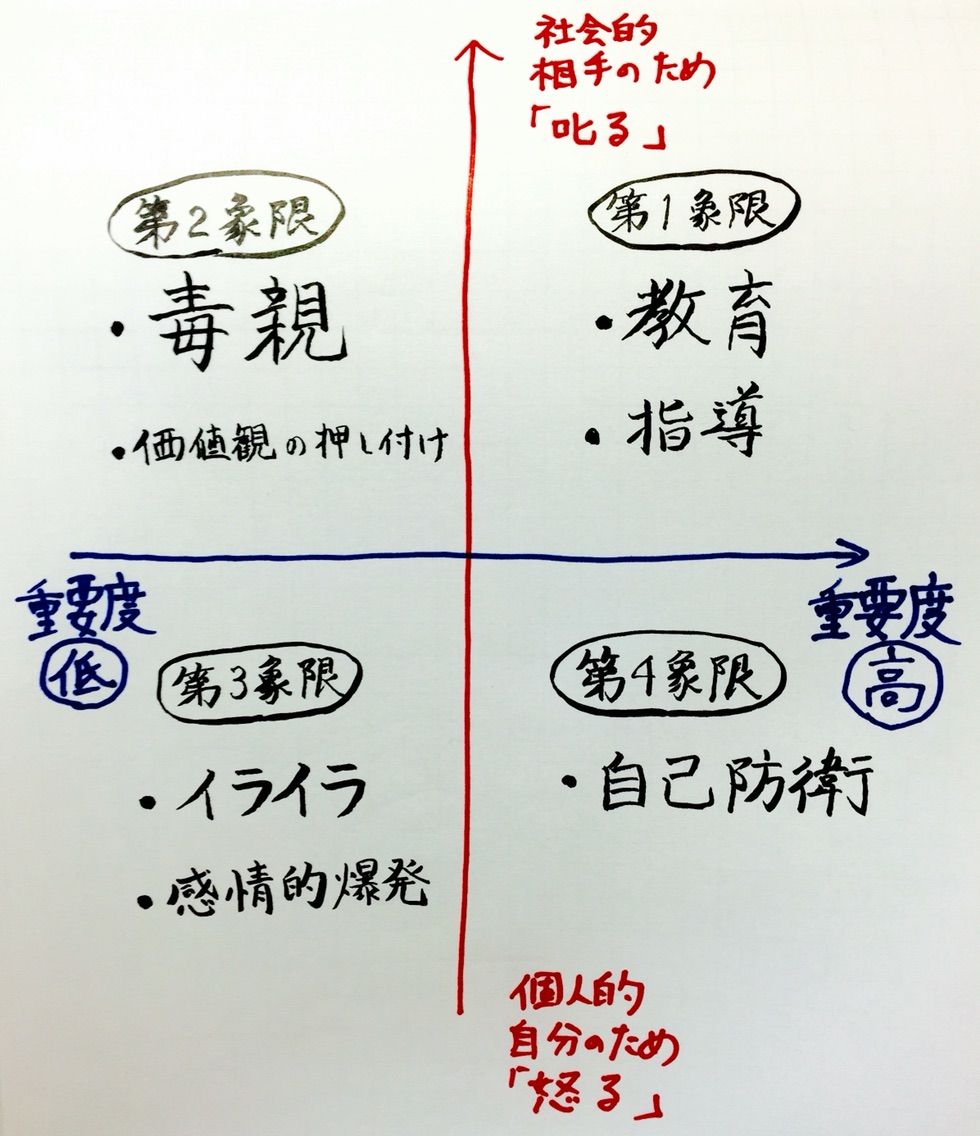 社会的
相手のため
「叱る」
第2象限
・毒親
・価値観の押し付け
第1象限
・教育
・指導
重要度
低
重要度
高
第3象限
・イライラ
・感情的爆発
第4象限
・自己防衛
個人的
自分のため
「怒る」